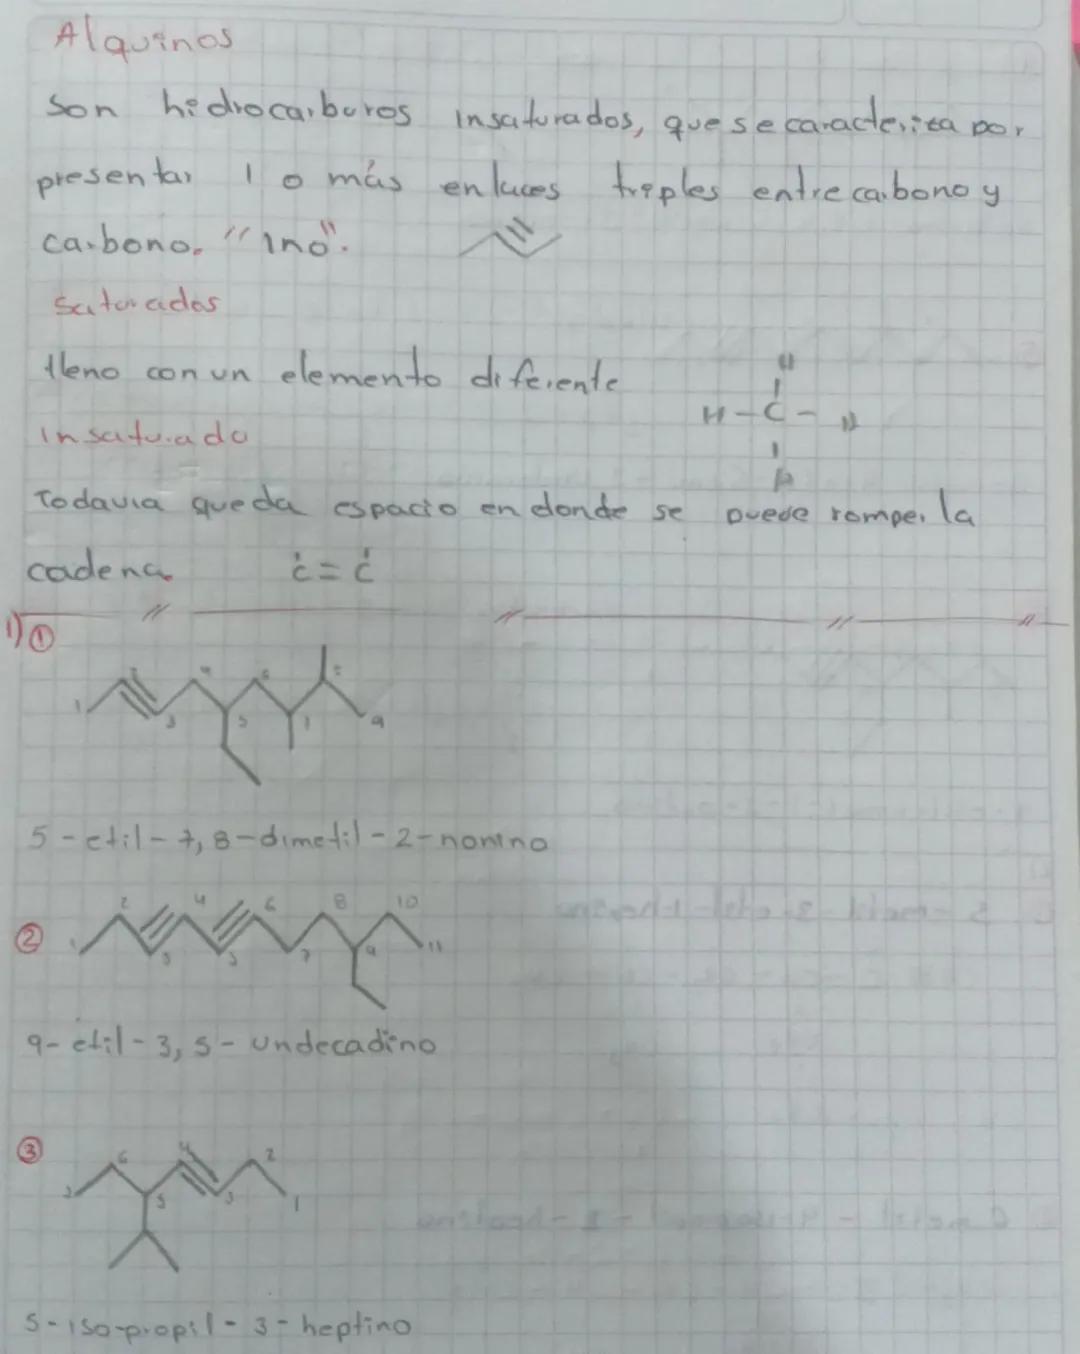 Alquinos
Son hidrocarburos insaturados, que se caracteriza por
presentar 1 o más enlaces triples entre carbono y
carbono. "ino".
Saturados
lleno con un elemento diferente
H
H-C-H
H
Insaturado
Todavia queda espacio en donde se puede romper la
cadena. C=C
1) ①
1 2 3 4 5 6 7 8 9
5-etil-7,8-dimetil-2-nonino
②
1 2 3 4 5 6 7 8 9 10 11
9-etil-3,5-undecadino
③
7 6 5 4 3 2 1
5-iso-propil-3-heptino